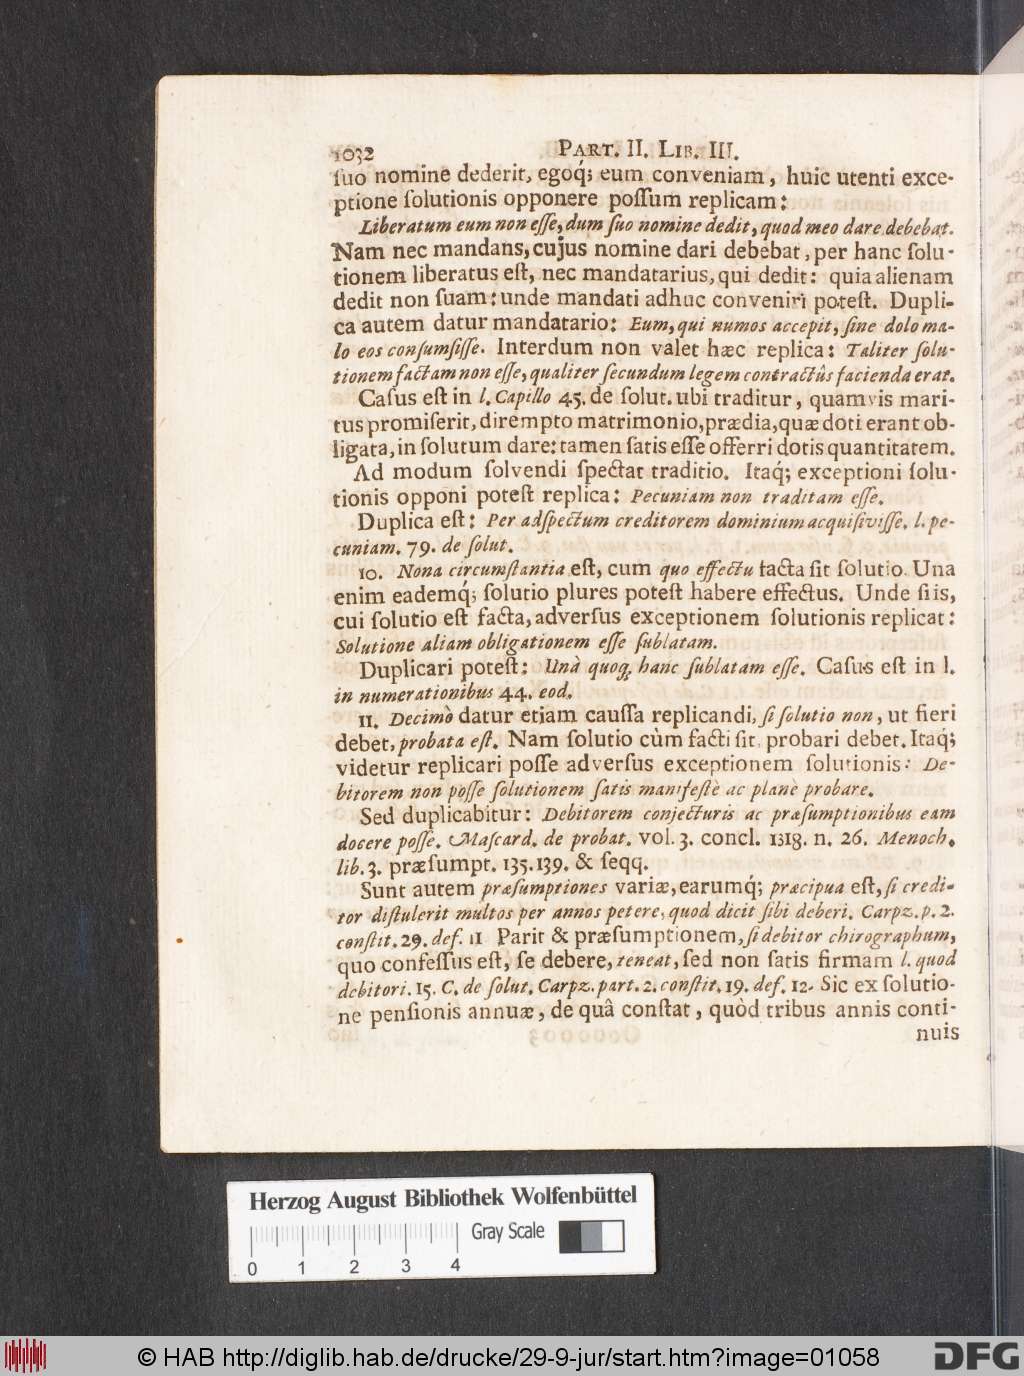 1032 PART. II. LIB. III.
ſuo nomine dederit, egoq́; eum conveniam, huic utenti exce-
ptione ſolutionis opponere poſſum replicam:
Liberatum eum non eſſe, dum ſuo nomine dedit, quod meo dare debebat.
Nam nec mandans, cujus nomine dari debebat, per hanc ſolu-
tionem liberatus eſt, nec mandatarius, qui dedit: quia alienam
dedit non ſuam: unde mandati adhuc conveniri poteſt. Dupli-
ca autem datur mandatario: Eum, qui numos accepit, ſine dolo ma-
lo eos conſumſiſſe. Interdum non valet hæc replica: Taliter ſolu-
tionem factam non eſſe, qualiter ſecundum legem contractûs facienda erat.
Caſus eſt in l. Capillo 45. de ſolut. ubi traditur, quamvis mari-
tus promiſerit, dirempto matrimonio, prædia, quæ doti erant ob-
ligata, in ſolutum dare: tamen ſatis eſſe offerri dotis quantitatem.
Ad modum ſolvendi ſpectat traditio. Itaq́; exceptioni ſolu-
tionis opponi poteſt replica: Pecuniam non traditam eſſe.
Duplica eſt: Per adſpectum creditorem dominium acquiſiviſſe. l. pe-
cuniam. 79. de ſolut.
10. Nona circumſtantia eſt, cum quo effectu facta ſit ſolutio. Una
enim eademq́; ſolutio plures poteſt habere effectus. Unde ſi is,
cui ſolutio eſt facta, adverſus exceptionem ſolutionis replicat:
Solutione aliam obligationem eſſe ſublatam.
Duplicari poteſt: Unà quoq; hanc ſublatam eſſe. Caſus eſt in l.
in numerationibus 44. eod.
11. Decimò datur etiam cauſſa replicandi, ſi ſolutio non, ut fieri
debet, probata eſt. Nam ſolutio cùm facti ſit, probari debet. Itaq́;
videtur replicari poſſe adverſus exceptionem ſolutionis: De-
bitorem non poſſe ſolutionem ſatis manifeſtè ac planè probare.
Sed duplicabitur: Debitorem conjecturis ac præſumptionibus eam
docere poſſe. Maſcard. de probat. vol. 3. concl. 1318. n. 26. Menoch.
lib. 3. præſumpt. 135. 139. & ſeqq.
Sunt autem præſumptiones variæ, earumq́; præcipua eſt, ſi credi-
tor diſtulerit multos per annos petere, quod dicit ſibi deberi. Carpz. p. 2.
conſtit. 29. def. 11 Parit & præſumptionem, ſi debitor chirographum,
quo confeſſus eſt, ſe debere, teneat, ſed non ſatis firmam l. quod
debitori. 15. C. de ſolut. Carpz. part. 2. conſtit. 19. def. 12. Sic ex ſolutio-
ne penſionis annuæ, de quâ conſtat, quòd tribus annis conti-
nuis
Herzog August Bibliothek Wolfenbüttel
Gray Scale
0 1 2 3 4
© HAB http://diglib.hab.de/drucke/29-9-jur/start.htm?image=01058
DFG